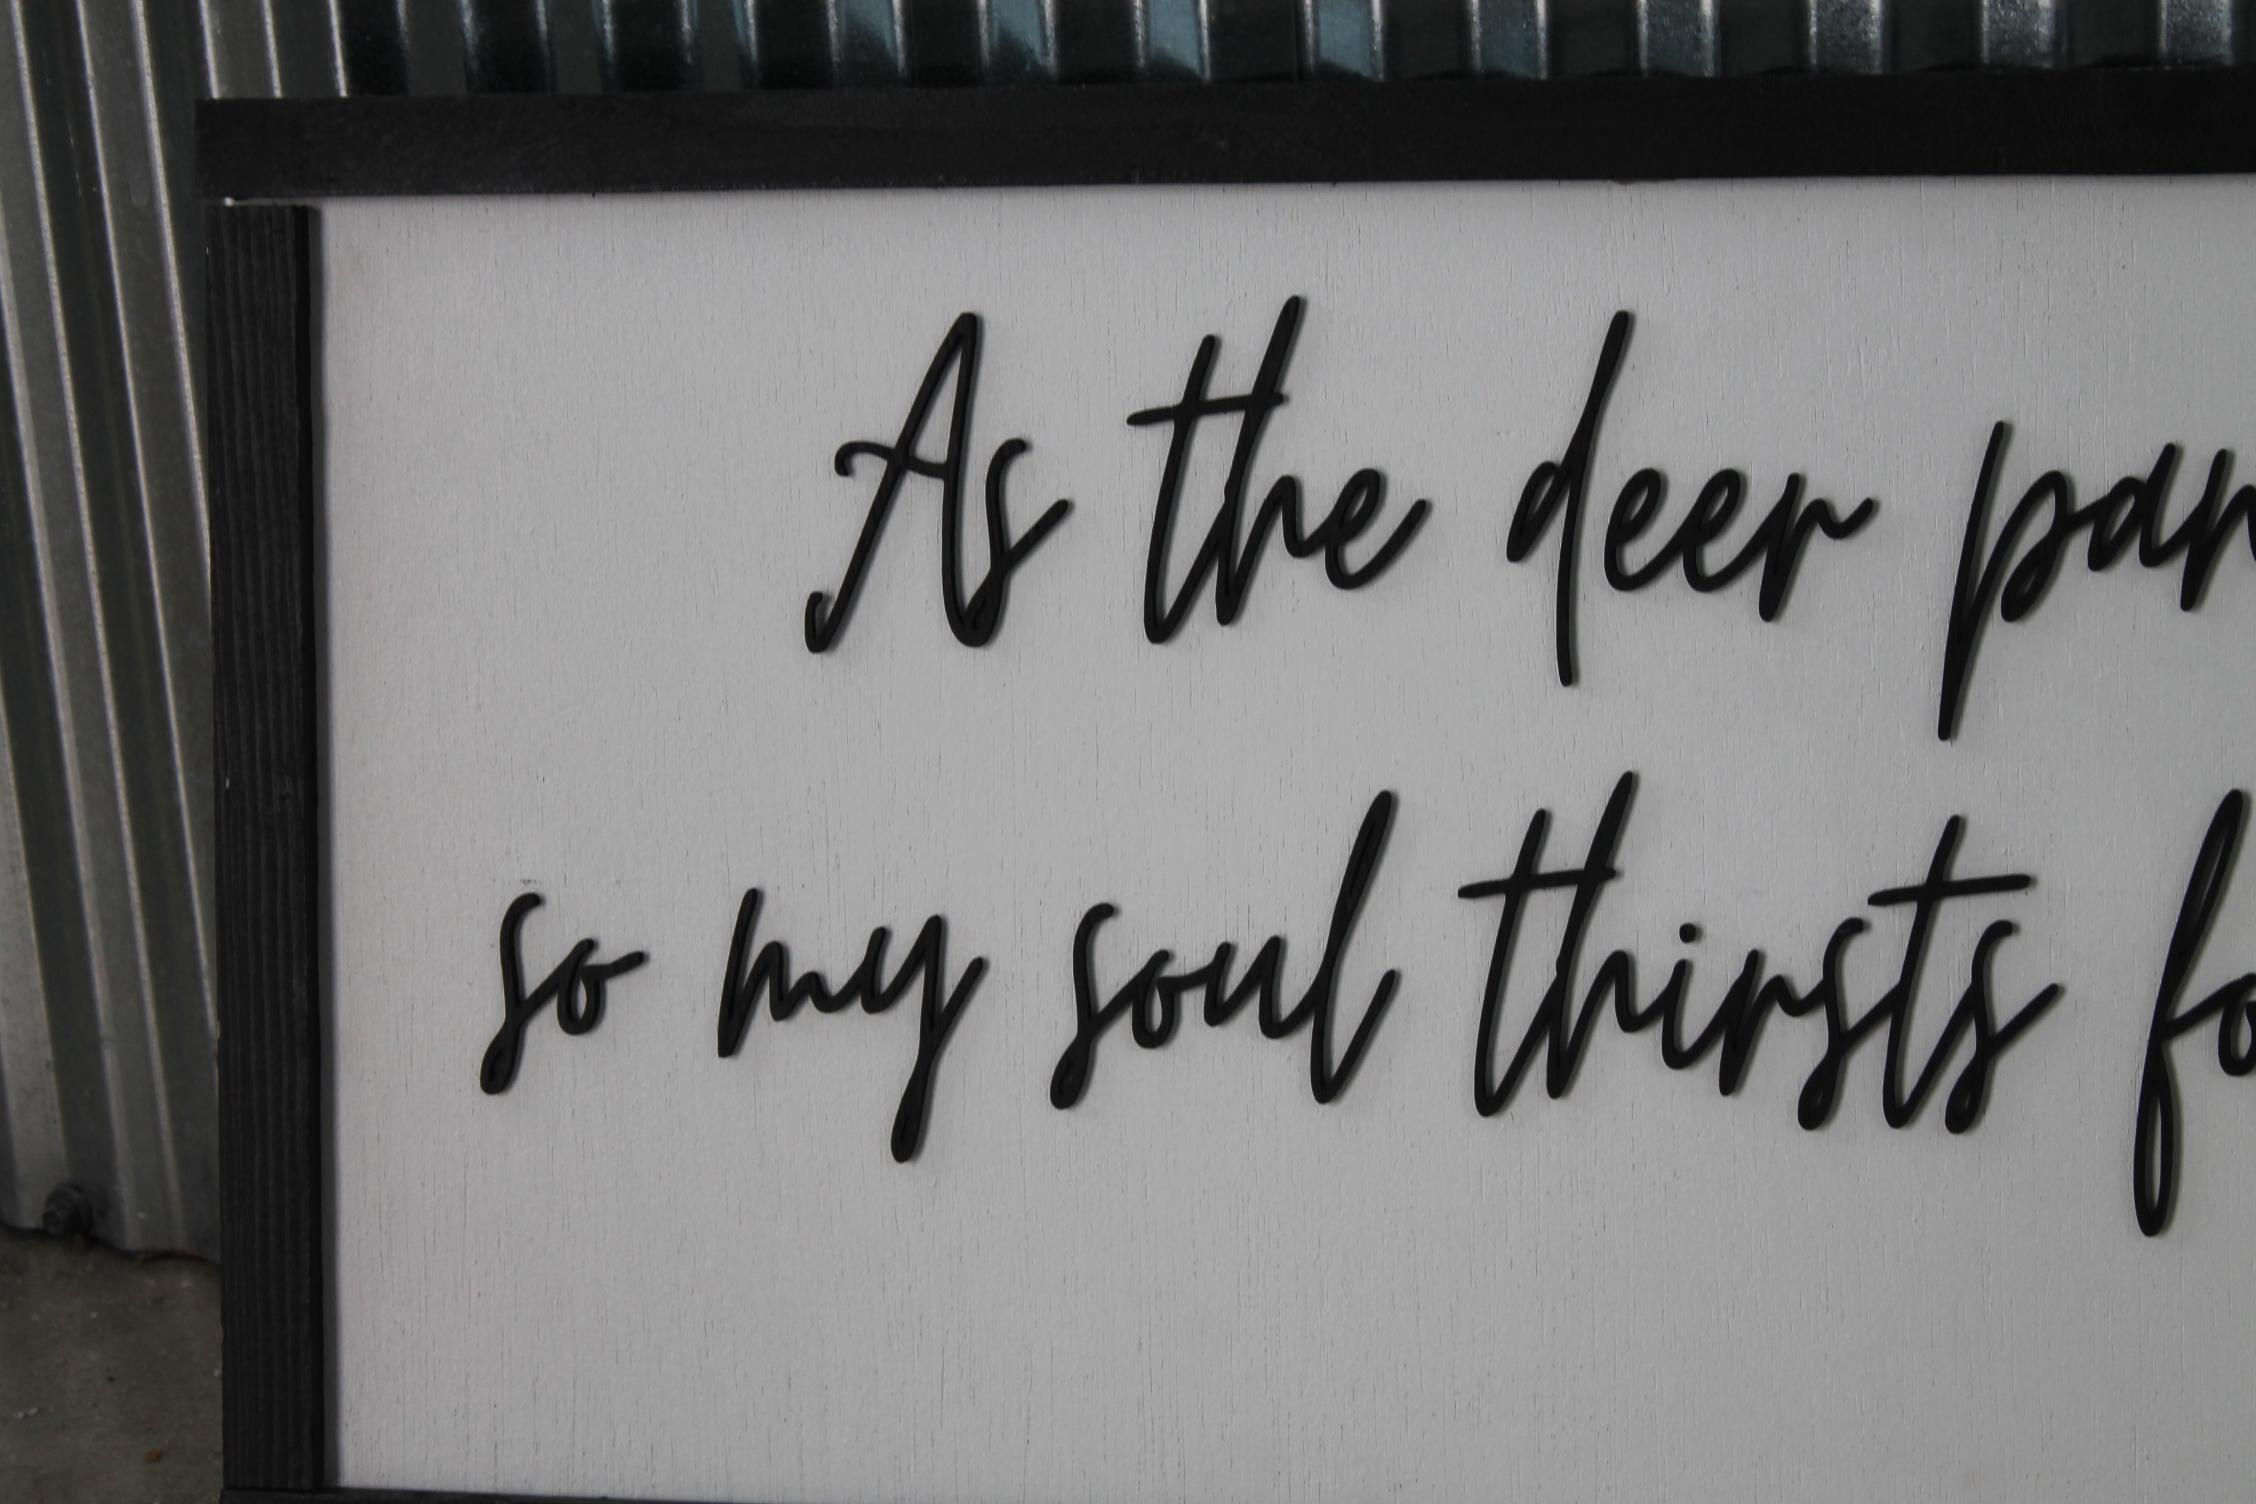 As the deer pan
so my soul thirsts fo